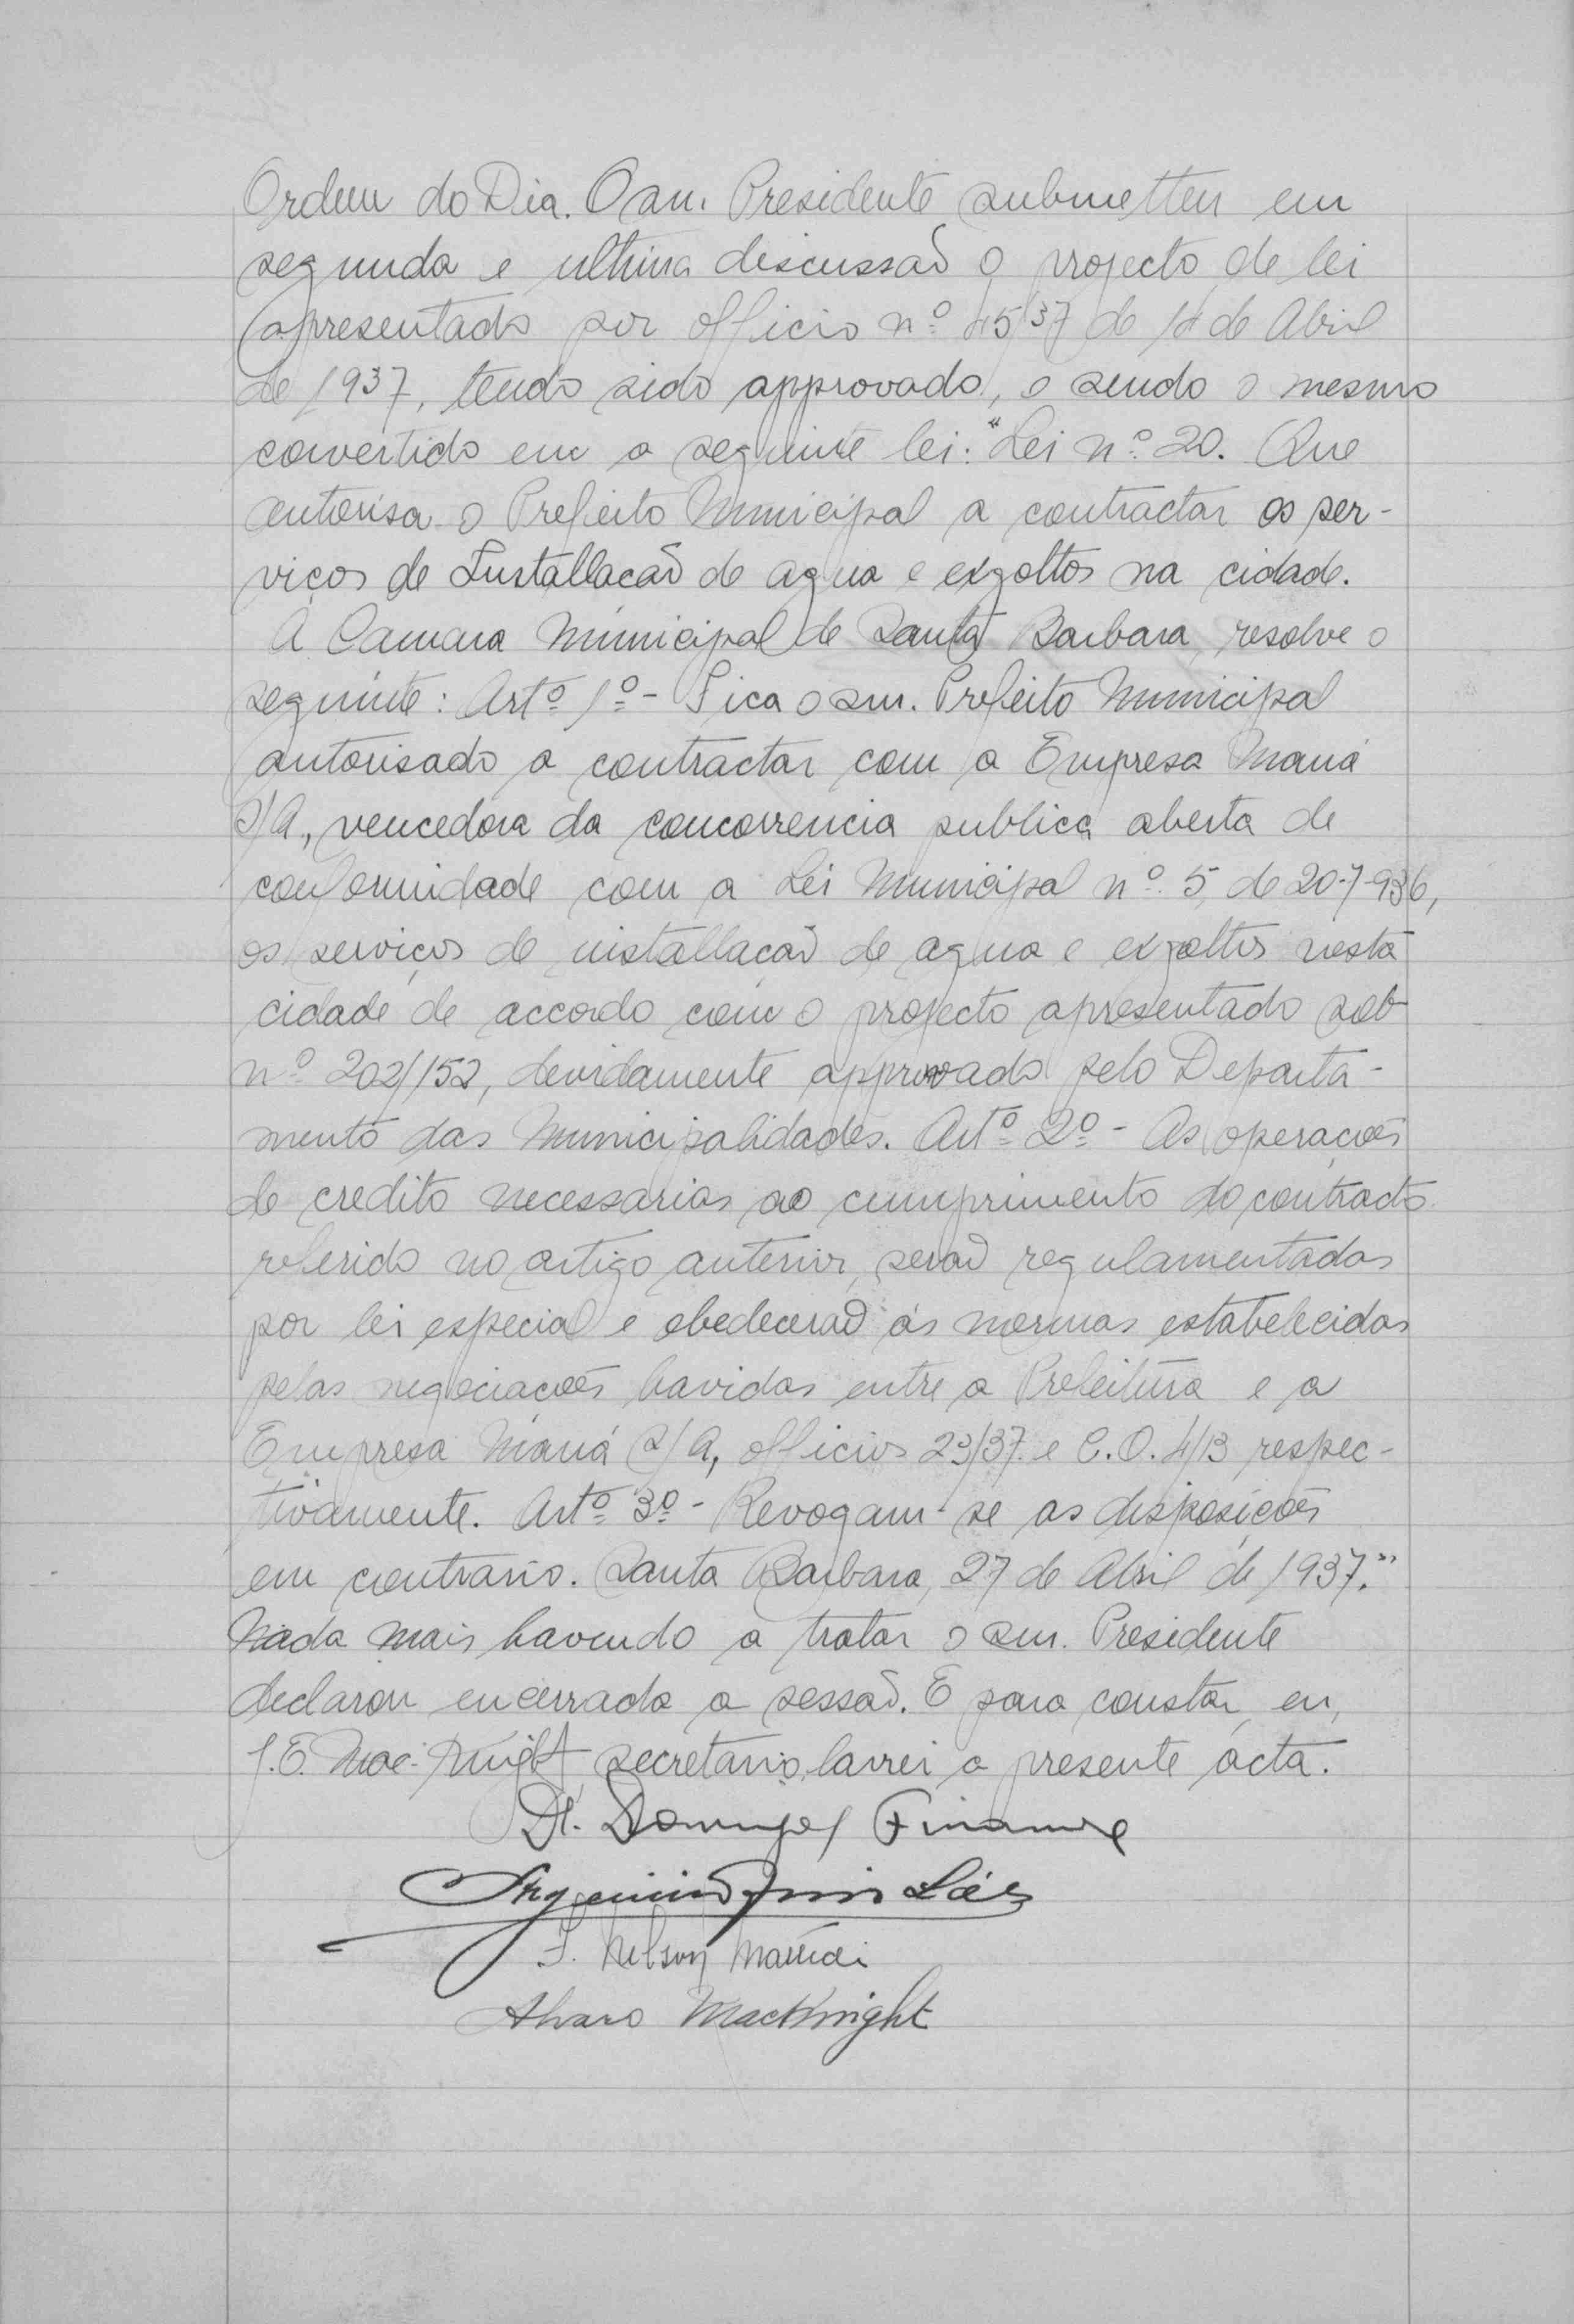 Ordem do Dia. O snr. Presidente submetteu em
segunda e ultima discussaõ o projecto de lei
apresentado por officio nº 45/37 de 14 de Abril
de 1937, tendo sido approvado, e sendo o mesmo
convertido em a seguinte lei: "Lei nº 20. Que
autorisa o Prefeito Municipal a contractar os ser-
viços de Installacaõ de agua e exgottos na cidade.
A Camara Municipal de Santa Barbara, resolve o
seguinte: Artº 1º - Fica o snr. Prefeito Municipal
autorisado a contractar com a Empresa Mauá
S/A, vencedora da concorrencia publica aberta de
conformidade com a Lei Municipal nº 5, de 20-7-936,
os serviços de installaçaõ de agua e exgottos nesta
cidade de accordo com o projecto apresentado sob
nº 202/152, devidamente approvado pelo Departa-
mento das Municipalidades. Artº 2º - As operaçoẽs
de credito necessarias ao cumprimento do contracto
referido no artigo anterior, seraõ regulamentadas
por lei especial e obedeceraõ ás normas estabelecidas
pelas negociacoẽs havidas entre a Prefeitura e a
Empresa Mauá S/A, officios 23/37 e C.O. 4/13 respec-
tivamente. Artº 3º - Revogam-se as disposicoẽs
em contrario. Santa Barbara, 27 de Abril de 1937."
Nada mais havendo a tratar o snr. Presidente
declarou encerrada a sessaõ. E para constar, eu,
J. E. Mac-Knight, secretario, lavrei a presente acta.
Dr. Domingos Finamore
J. Nelson
Alvaro MacKnight